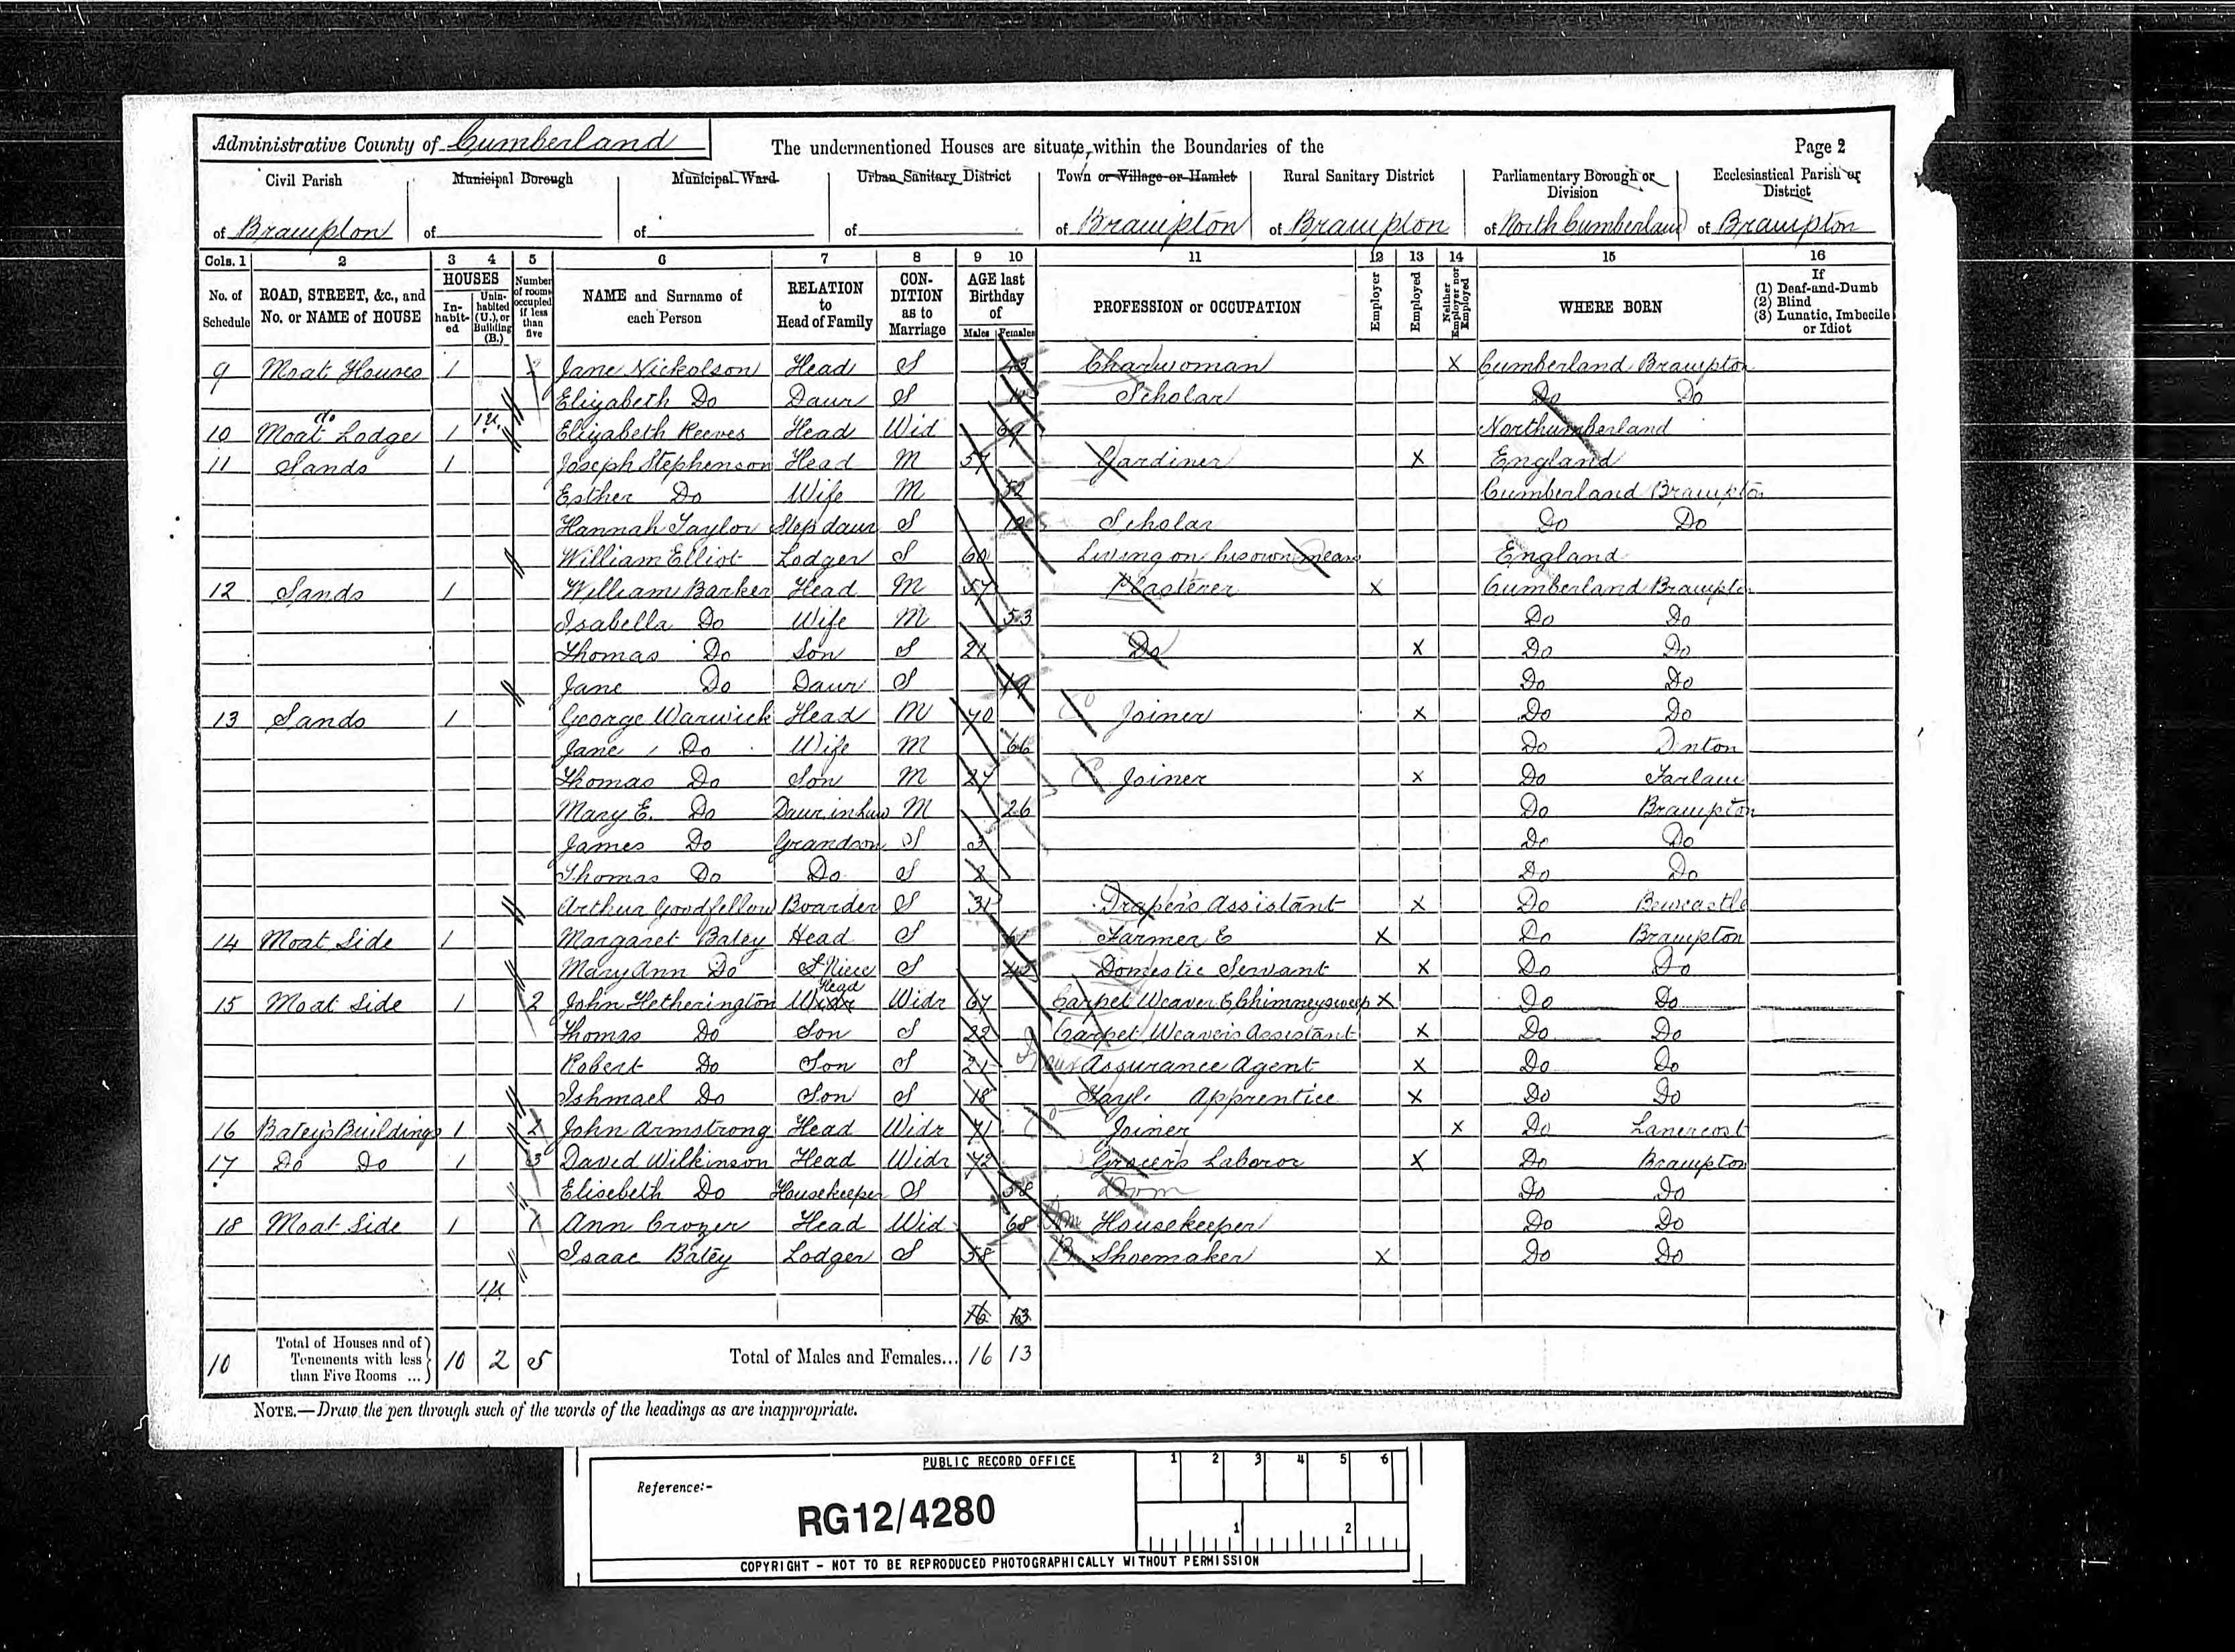 Administrative County of Cumberland The undermentioned Houses are situate within the Boundaries of the Page 2
Civil Parish Municipal Borough Municipal Ward Urban Sanitary District Town or Village or Hamlet Rural Sanitary District Parliamentary Borough or Division Ecclesiastical Parish or District
of Brampton of of of of Brampton of Brampton of North Cumberland of Brampton
Cols. 1 2 3 4 5 6 7 8 9 10 11 12 13 14 15 16
No. of Schedule ROAD, STREET, &c., and No. or NAME of HOUSE HOUSES Inhabited Uninhabited (U.), or Building (B.) Number of rooms occupied if less than five NAME and Surname of each Person RELATION to Head of Family CONDITION as to Marriage AGE last Birthday of Males Females PROFESSION or OCCUPATION Employer Employed Neither Employer nor Employed WHERE BORN If (1) Deaf-and-Dumb (2) Blind (3) Lunatic, Imbecile or Idiot
9 Moat Houses 1 Jane Nickolson Head S 43 Charwoman X Cumberland Brampton
Elizabeth Do Daur S Scholar Do Do
do
10 Moat Lodge 1 1 U. Elizabeth Reeves Head Wid 69 Northumberland
11 Sands 1 Joseph Stephenson Head M 57 Gardiner X England
Esther Do Wife M 52 Cumberland Brampton
Hannah Taylor Step daur S 12 Scholar Do Do
William Elliot Lodger S 60 Living on his own means England
12 Sands 1 William Barker Head M 57 Plasterer X Cumberland Brampton
Isabella Do Wife M 53 Do Do
Thomas Do Son S 21 Do X Do Do
Jane Do Daur S 19 Do Do
13 Sands 1 George Warwick Head M 70 Joiner X Do Do
Jane Do Wife M 66 Do Denton
Thomas Do Son M 27 Joiner X Do Farlam
Mary E. Do Daur in law M 26 Do Brampton
James Do Grandson S 3 Do Do
Thomas Do Do S 2 Do Do
Arthur Goodfellow Boarder S 31 Draper's Assistant X Do Bewcastle
14 Moat Side 1 Margaret Batey Head S 61 Farmer E X Do Brampton
Mary Ann Do Niece S 45 Domestic Servant X Do Do
Head
15 Moat Side 1 2 John Hetherington Widr Widr 67 Carpet Weaver & Chimneysweep X Do Do
Thomas Do Son S 22 Carpet Weaver's Assistant X Do Do
Robert Do Son S 21 Assurance Agent X Do Do
Ishmael Do Son S 18 Apprentice X Do Do
16 Batey's Buildings 1 2 John Armstrong Head Widr 71 Joiner X Do Lanercost
17 Do Do 1 3 David Wilkinson Head Widr 72 Grocer's Laboror X Do Brampton
Elisebeth Do Housekeeper S 38 Dom Do Do
18 Moat Side 1 1 Ann Crozer Head Wid 68 Housekeeper Do Do
Isaac Batey Lodger S 58 Shoemaker X Do Do
1 U
16 13
10 Total of Houses and of Tenements with less than Five Rooms ... 10 2 5 Total of Males and Females... 16 13
NOTE.—Draw the pen through such of the words of the headings as are inappropriate.
PUBLIC RECORD OFFICE 1 2 3 4 5 6
Reference:-
RG12/4280
1 2
COPYRIGHT - NOT TO BE REPRODUCED PHOTOGRAPHICALLY WITHOUT PERMISSION